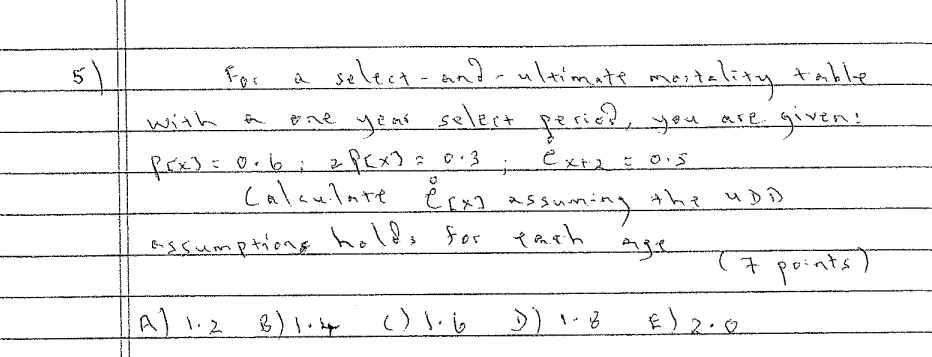 5) For a select-and-ultimate mortality table
with a one year select period, you are given:
P[x] = 0.6 ; 2P[x] = 0.3 ; e̊x+2 = 0.5
Calculate e̊[x] assuming the UDD
assumptions holds for each age
(7 points)
A) 1.2 B) 1.4 C) 1.6 D) 1.8 E) 2.0